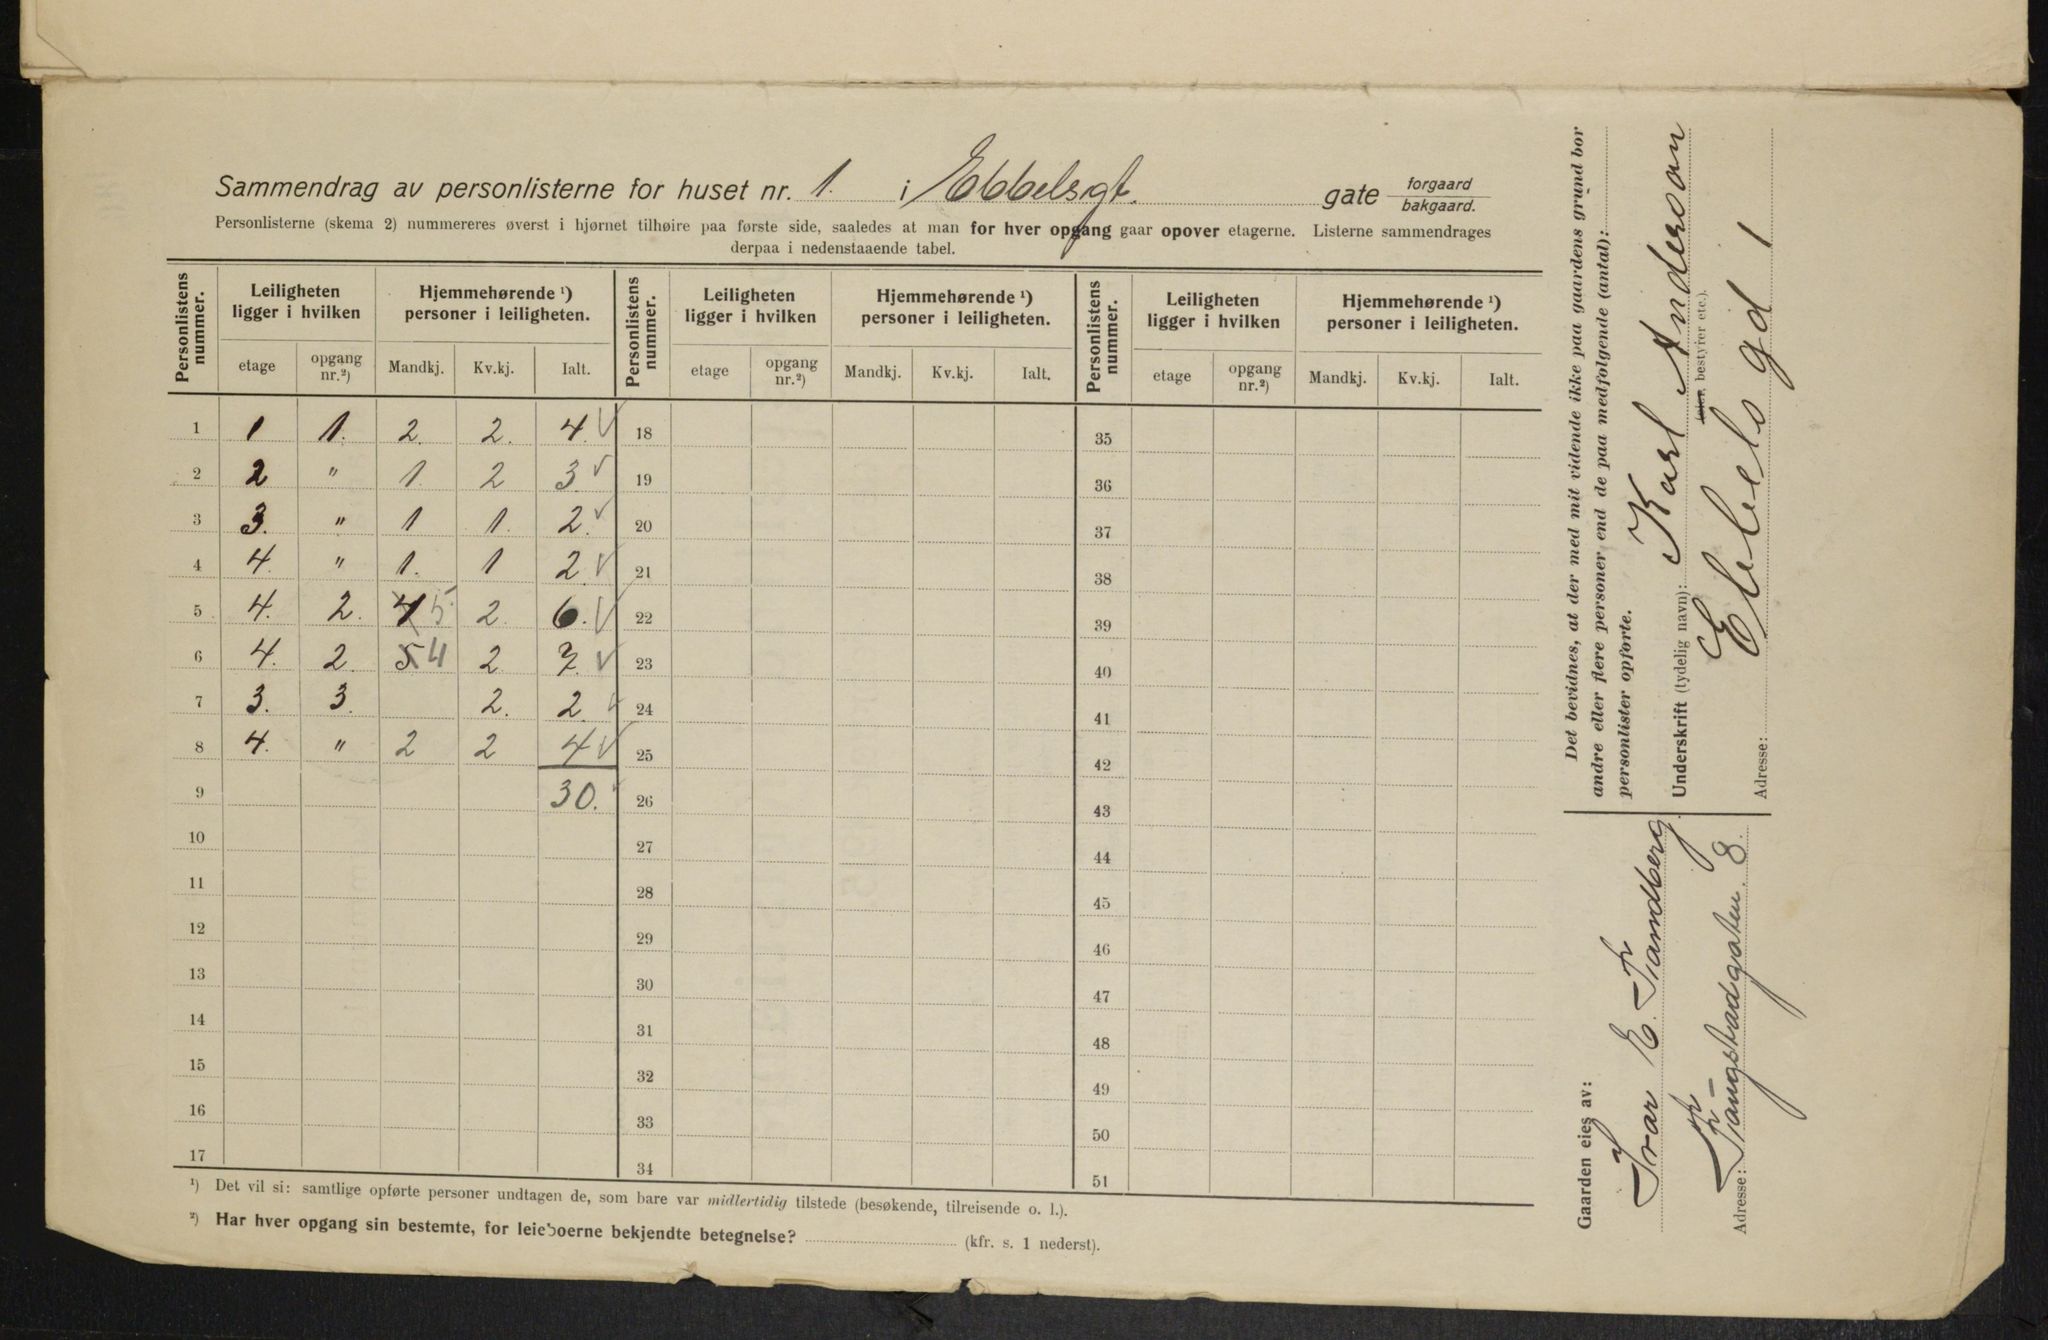 Sammendrag av personlisterne for huset nr. 1. i Ebbelsgt. gate forgaard bakgaard.
Personlisterne (skema 2) nummereres øverst i hjørnet tilhøire paa første side, saaledes at man for hver opgang gaar opover etagerne. Listerne sammendrages
derpaa i nedenstaaende tabel.
Personlistens nummer. Leiligheten ligger i hvilken Hjemmehørende ¹) personer i leiligheten. Personlistens nummer. Leiligheten ligger i hvilken Hjemmehørende ¹) personer i leiligheten. Personlistens nummer. Leiligheten ligger i hvilken Hjemmehørende ¹) personer i leiligheten.
etage opgang nr.²) Mandkj. Kv.kj. Ialt. etage opgang nr.²) Mandkj. Kv.kj. Ialt. etage opgang nr.²) Mandkj. Kv.kj. Ialt.
1 1 1. 2. 2. 4. √ 18 35
2 2 " 1. 2 3. √ 19 36
3 3. " 1 1. 2. √ 20 37
4 4. " 1. 1 2. √ 21 38
5 4. 2. 5 2. 6. √ 22 39
6 4. 2. 5 4 2 7. √ 23 40
7 3. 3. 2. 2. √ 24 41
8 4. " 2 2 4 √ 25 42
9 30. 26 43
10 27 44
11 28 45
12 29 46
13 30 47
14 31 48
15 32 49
16 33 50
17 34 51
¹) Det vil si: samtlige opførte personer undtagen de, som bare var midlertidig tilstede (besøkende, tilreisende o. l.).
²) Har hver opgang sin bestemte, for leieboerne bekjendte betegnelse? (kfr. s. 1 nederst).
Det bevidnes, at der med mit vidende ikke paa gaardens grund bor
andre eller flere personer end de paa medfølgende (antal):
personlister opførte.
Underskrift (tydelig navn): Karl Anderson
(eier, bestyrer etc.).
Adresse: Ebbels gd 1
Gaarden eies av:
Ivar E. Sandberg
Adresse: Tangstadgaten 8.